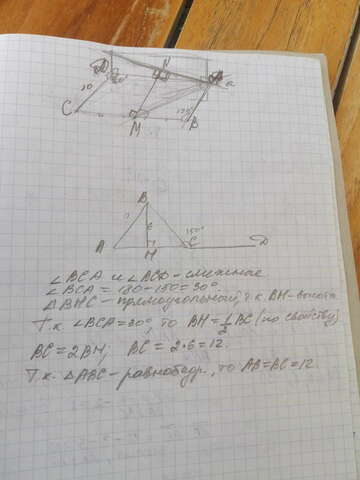 N
D
A
a
10
120°
C
M
B
B
6
150°
A
H
C
D
∠BCA и ∠BCD - смежные
∠BCA = 180 - 150 = 30°.
△BHC - прямоугольный, т.к. BH - высота
Т.к. ∠BCA = 30°, то BH = 1/2 BC (по свойству)
BC = 2BH; BC = 2·6 = 12.
Т.к. △ABC - равнобедр., то AB = BC = 12.